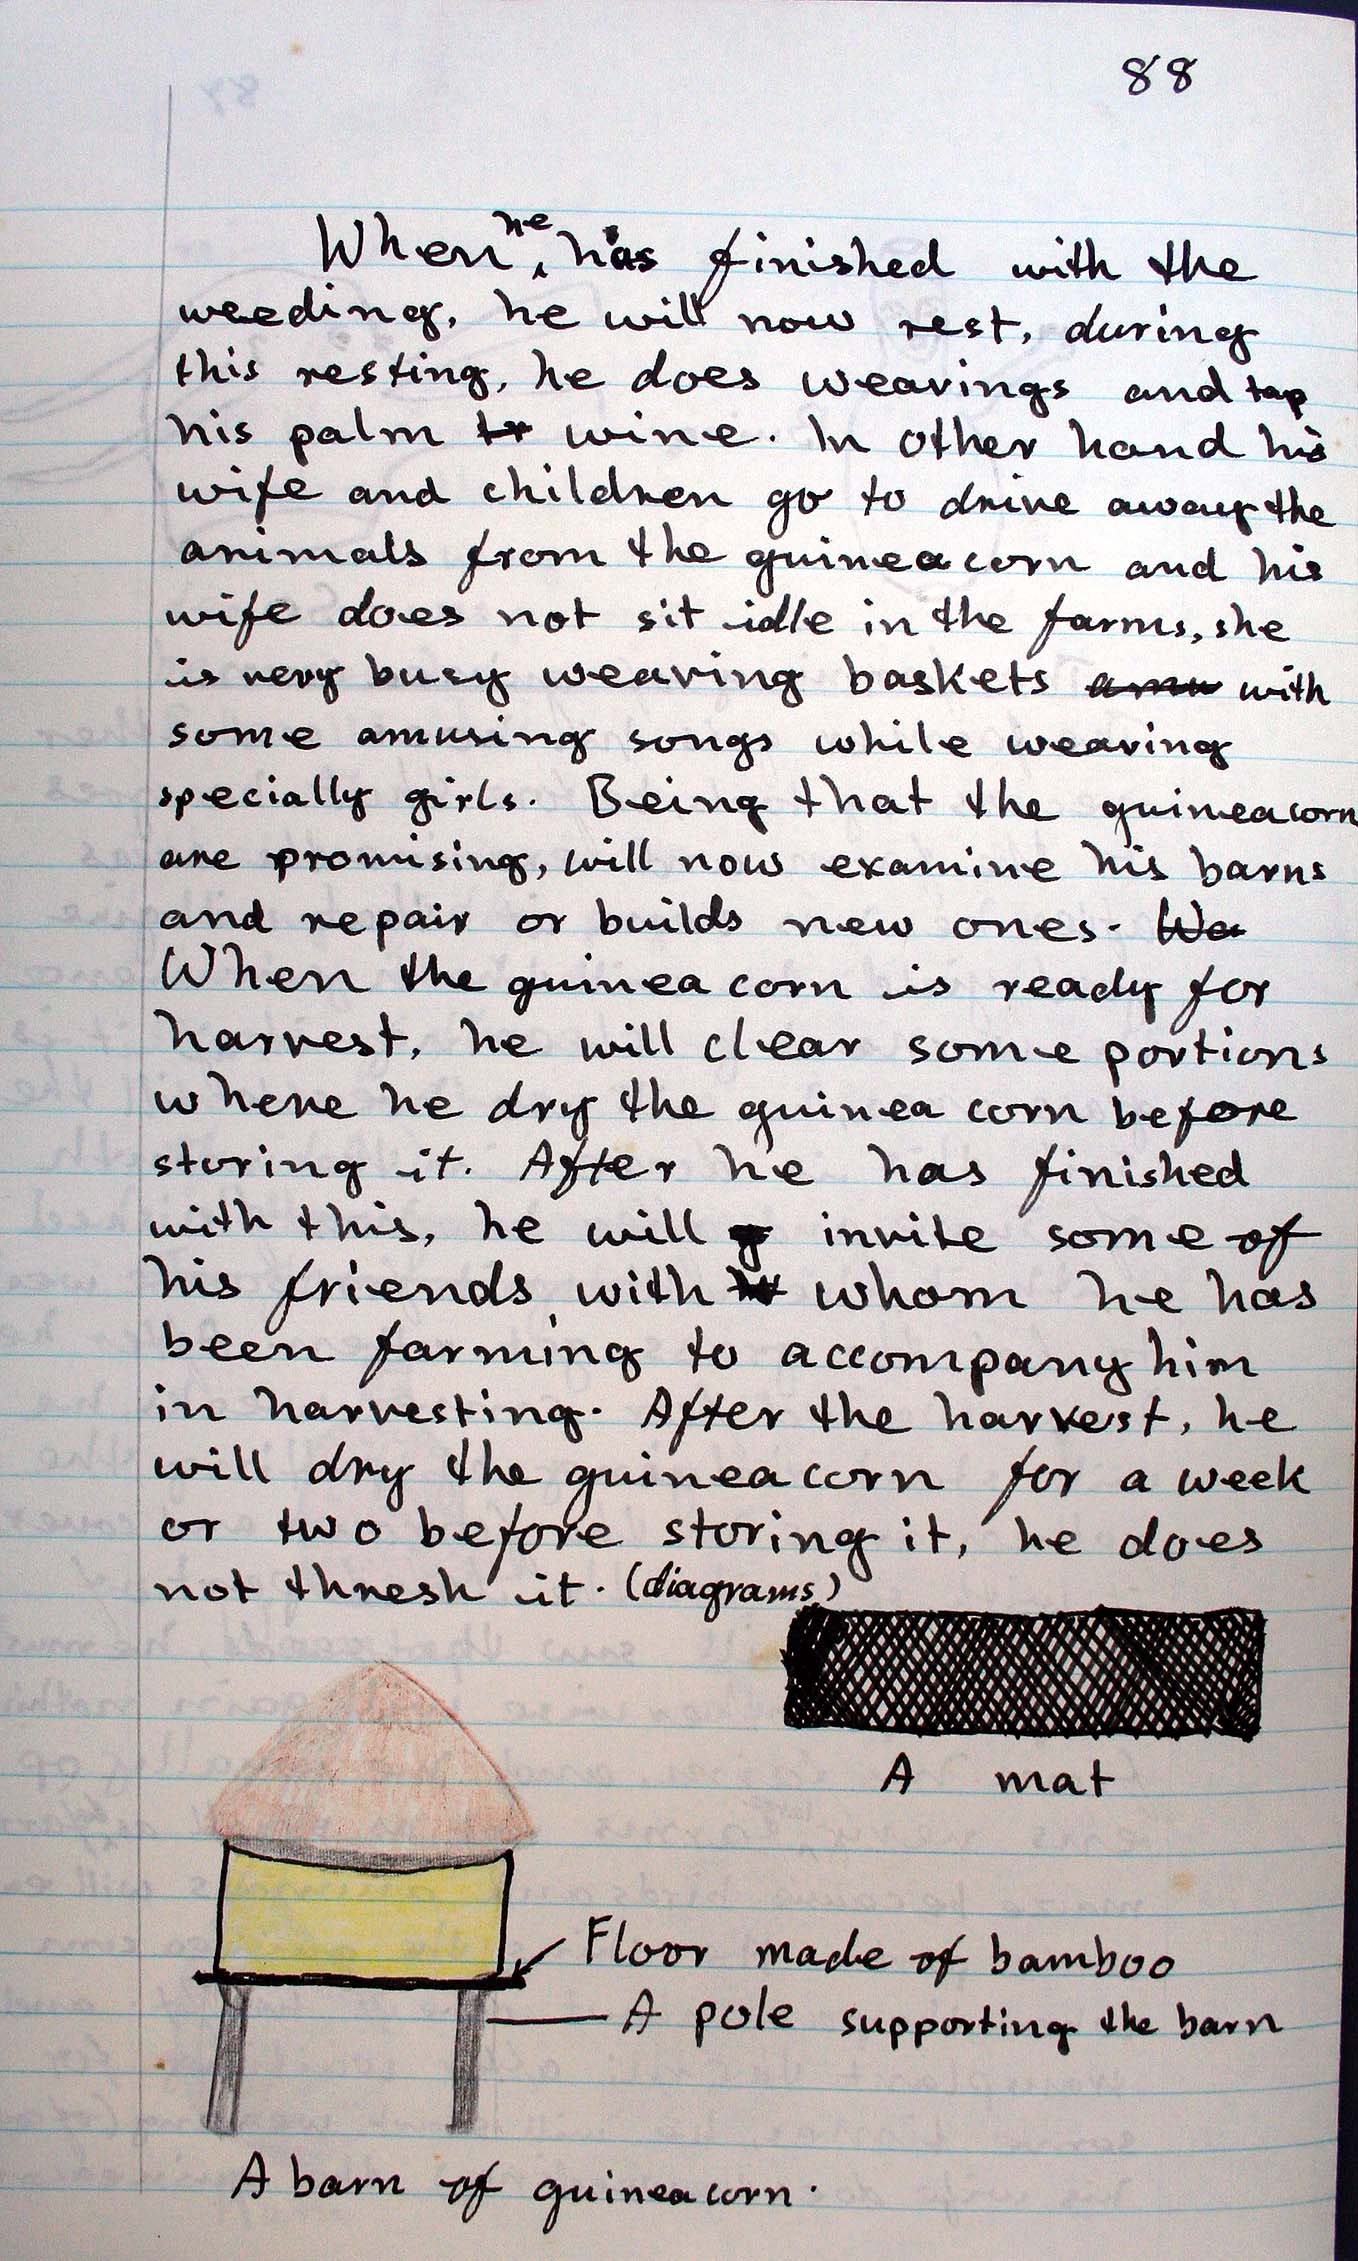 88
When he has finished with the
weeding, he will now rest, during
this resting, he does weavings and tap
his palm tr wine. In other hand his
wife and children go to drive away the
animals from the guineacorn and his
wife does not sit idle in the farms, she
is very busy weaving baskets amu with
some amusing songs while weaving
specially girls. Being that the guineacorn
are promising, will now examine his barns
and repair or builds new ones. We
When the guinea corn is ready for
harvest, he will clear some portions
where he dry the guinea corn before
storing it. After he has finished
with this, he will invite some of
his friends with whom he has
been farming to accompany him
in harvesting. After the harvest, he
will dry the guineacorn for a week
or two before storing it, he does
not thresh it. (diagrams)
A mat
Floor made of bamboo
A pole supporting the barn
A barn of guineacorn.